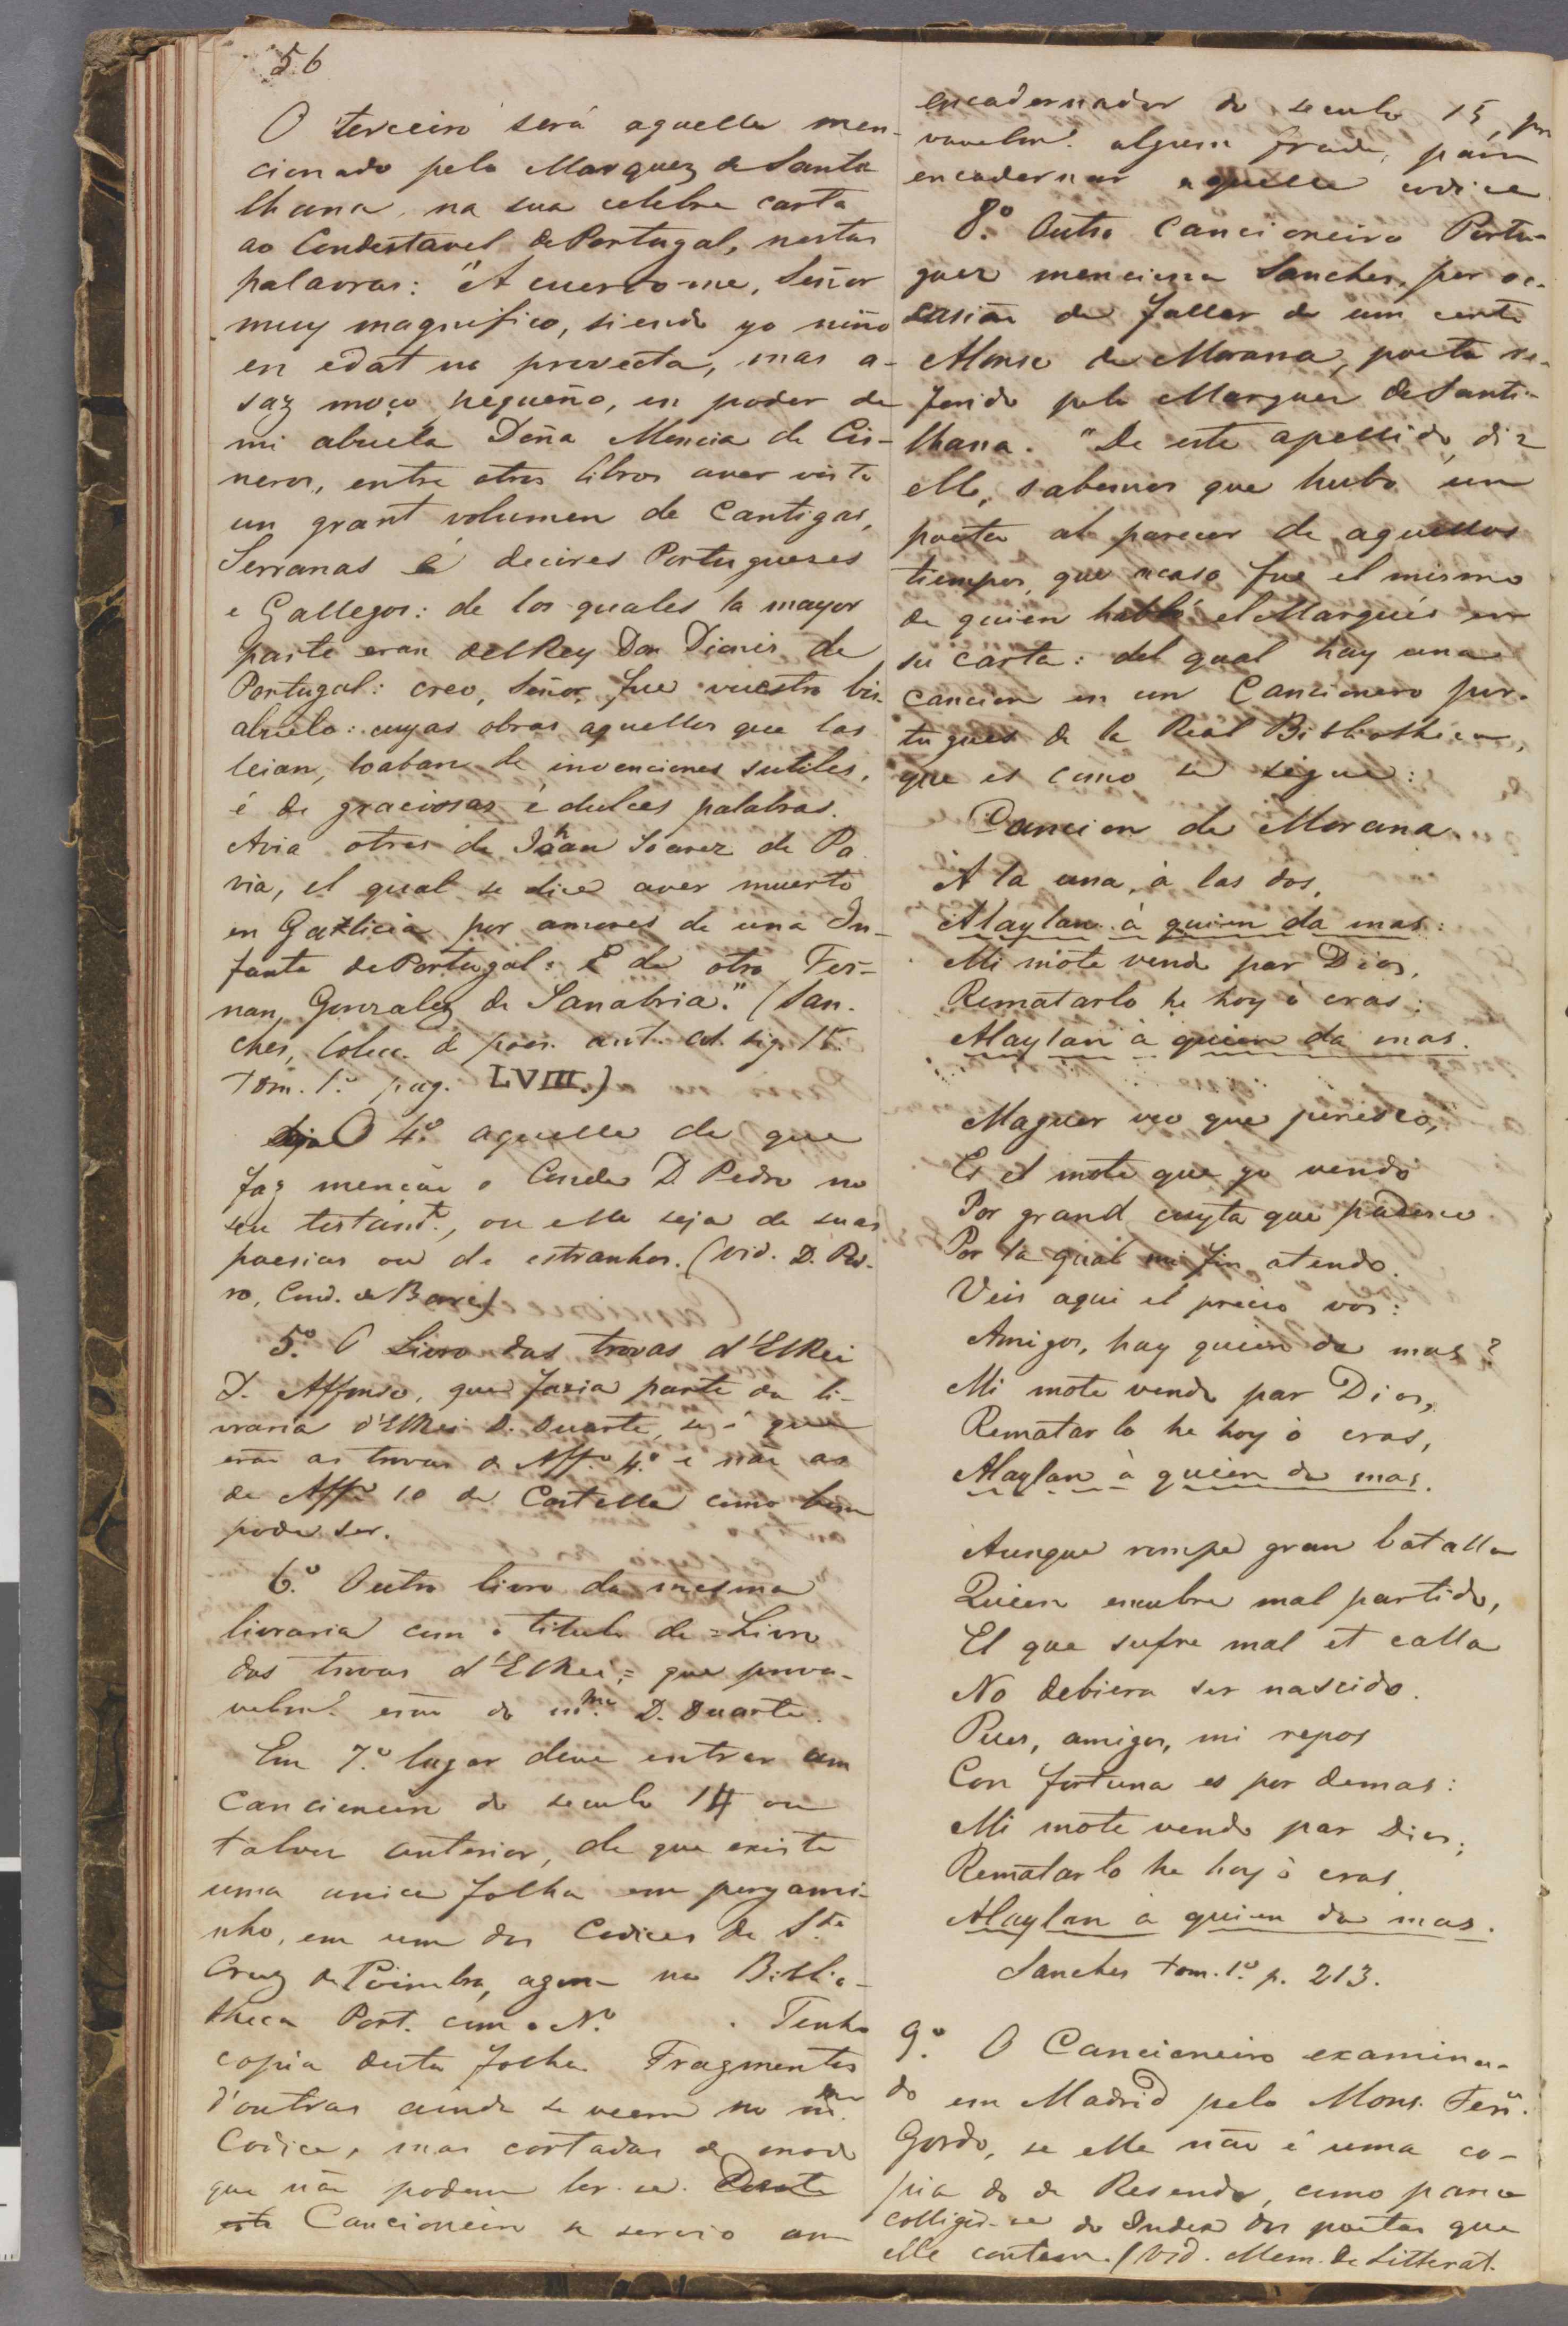 56
O terceiro será aquelle men-
cionado pelo Marquez de Santi
lhana, na sua celebre carta
ao Condestavel de Portugal, nestas
palavras: "Acuerdo-me, Señor
muy magnifico, siendo yo niño
en edat no provecta, mas a-
saz moço pequeño, en poder de
mi abuela Doña Mencia de Cis-
neros, entre otros libros aver visto
un grant volumen de Cantigas,
Serranas é decires Portugueses
e Gallegos: de los quales la mayor
parte eran del Rey Don Dionis de
Portugal: creo, Señor, fue vuestro bis-
abuelo: cuyas obras aquellos que las
leian, loaban de invenciones sutiles,
é de graciosas é dulces palabras.
Avia otras de Johan Soarez de Pa
via, el qual se dice aver muerto
en Galicia por amores de una In-
fanta de Portugal: E de otro Fer-
nan Gonzalez de Sanabria." (San-
ches, Colecc. de poes. ant. al sig. 15.
Tom. 1.º pag. LVIII.)
O 4.º aquelle de que
faz menção o Conde D. Pedro no
seu testamt.º, ou elle seja de suas
poesias ou de estranhos. (Vid. D. Ped-
ro, Cond. de Barc.)
5.º O Livro das trovas d'ElRei
D. Affonso, que fazia parte da li-
vraria d'ElRei D. Duarte, se é que
erão as trovas de Aff.º 4.º e não as
de Aff.º 10 de Castella como bem
pode ser.
6.º Outro livro da mesma
livraria com o titulo de = Livro
das trovas d'ElRei, = que prova-
velmt.e erão do m.mo D. Duarte.
Em 7.º lugar deve entrar um
Cancioneiro do seculo 14 ou
talvez anterior, de que existe
uma unica folha em pergami-
nho, em um dos Codices de S.ta
Cruz de Coimbra, agora na Biblio-
theca Port. com o N.º . Tenho
copia desta folha. Fragmentos
d'outras ainda se veem no m.mo
Codice, mas cortadas de modo
que não podem ler-se. Deste
este Cancioneiro se servio um
encadernador do seculo 15, pro
vavelm.e algum frade, para
encadernar aquelle codice
8.º Outro Cancioneiro Portu-
guez menciona Sanches, por oc-
casião de fallar de um certo
Alfonso de Morana, poeta re-
ferido pelo Marquez de Santi-
lhana. "De este apellido, diz
elle, sabemos que hubo un
poeta al parecer de aquellos
tiempos, que acaso fue el mismo
de quien habló el Marqués en
su carta: del qual hay una
cancion en un Cancionero por-
tugues de la Real Bibliotheca,
que es como se sigue:
Cancion de Morana
A la una, à las dos,
Alaylan à quien da mas:
Mi mote vendo par Dios,
Rematarlo he hoy ó cras:
Alaylan à quien da mas.
Maguer veo que peresco,
Es el mote que yo vendo
Por grand cuyta que padesco
Por la qual mi fin atendo.
Veis aqui el precio vos:
Amigos, hay quien da mas?
Mi mote vendo par Dios,
Rematarlo he hoy ò cras,
Alaylan à quien da mas.
Aunque rompe gran batalla
Quien encubre mal partido,
El que sufre mal et calla
No debiera ser nascido.
Pues, amigos, mi repos
Con fortuna es por demas:
Mi mote vendo par Dios;
Rematarlo he hoy ò cras
Alaylan à quien da mas.
Sanches tom. 1.º p. 213.
9.º O Cancioneiro examina-
do em Madrid pelo Mons. Ferr.ª
Gordo, se elle não é uma co-
pia do de Resende, como parece
colligir-se do Index dos poetas que
elle contem. (Vid. Mem. de Litterat.